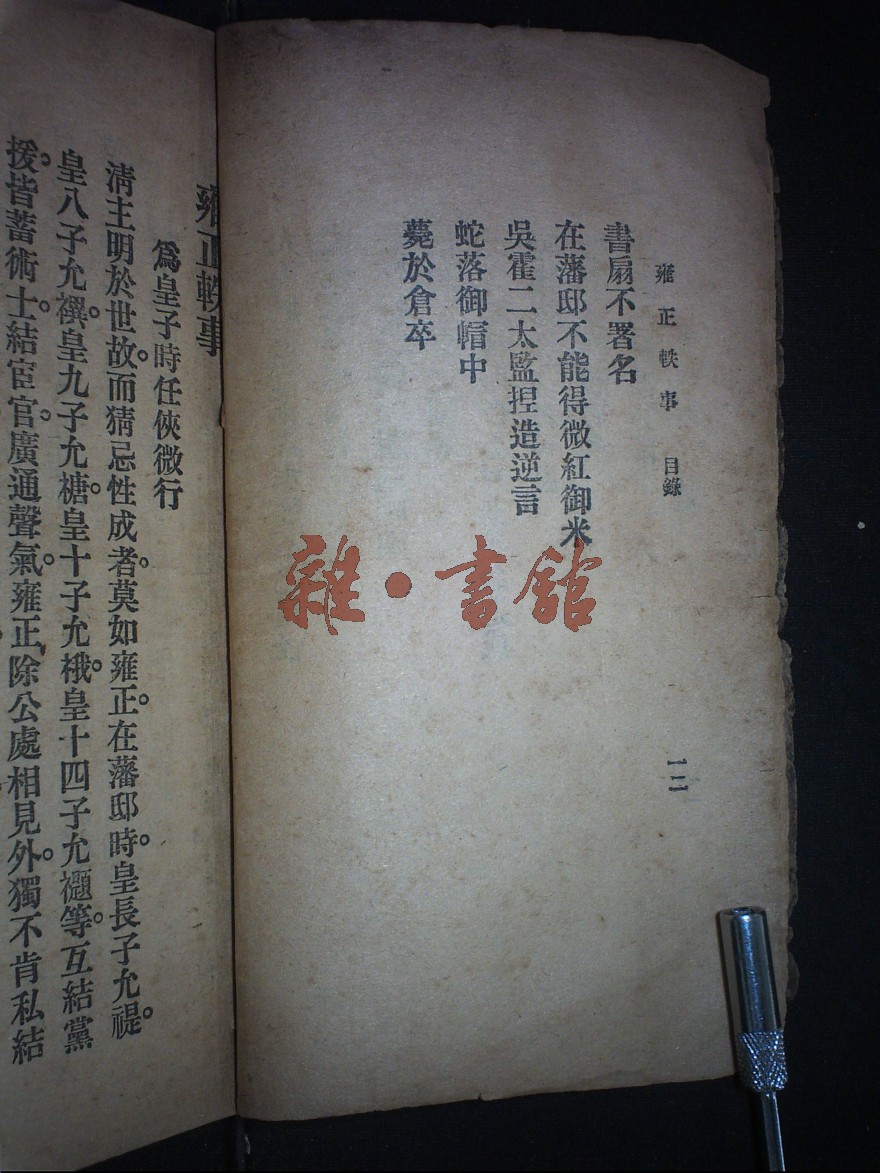 雍正軼事 目錄 一二
書扇不署名
在藩邸不能得微紅御米
吳霍二太監捏造逆言
蛇落御帽中
薨於倉卒
雍正軼事
爲皇子時任俠微行
淸主明於世故。而猜忌性成者。莫如雍正。在藩邸時。皇長子允禔。
皇八子允禩。皇九子允禟。皇十子允䄉。皇十四子允禵等。互結黨
援。皆蓄術士。結宦官。廣通聲氣。雍正除公處相見外。獨不肯私結
雜·書館